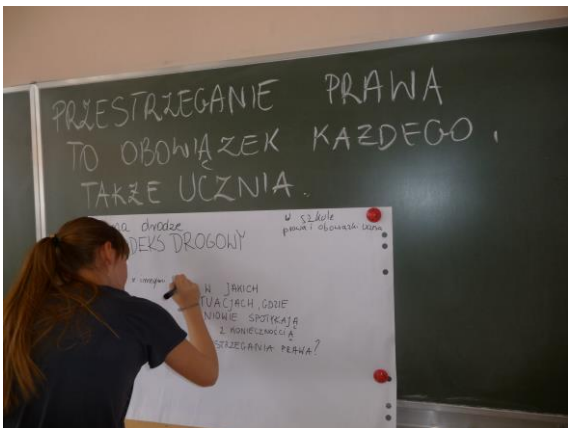 PRZESTRZEGANIE PRAWA
TO OBOWIĄZEK KAŻDEGO,
TAKŻE UCZNIA.
na drodze
DEKS DROGOWY
w szkole
prawa i obowiązki ucznia
W JAKICH
TUACJACH, GDZIE
NIOWIE SPOTYKAJĄ
Z KONIECZNOŚCIĄ
STRZEGANIA PRAWA?